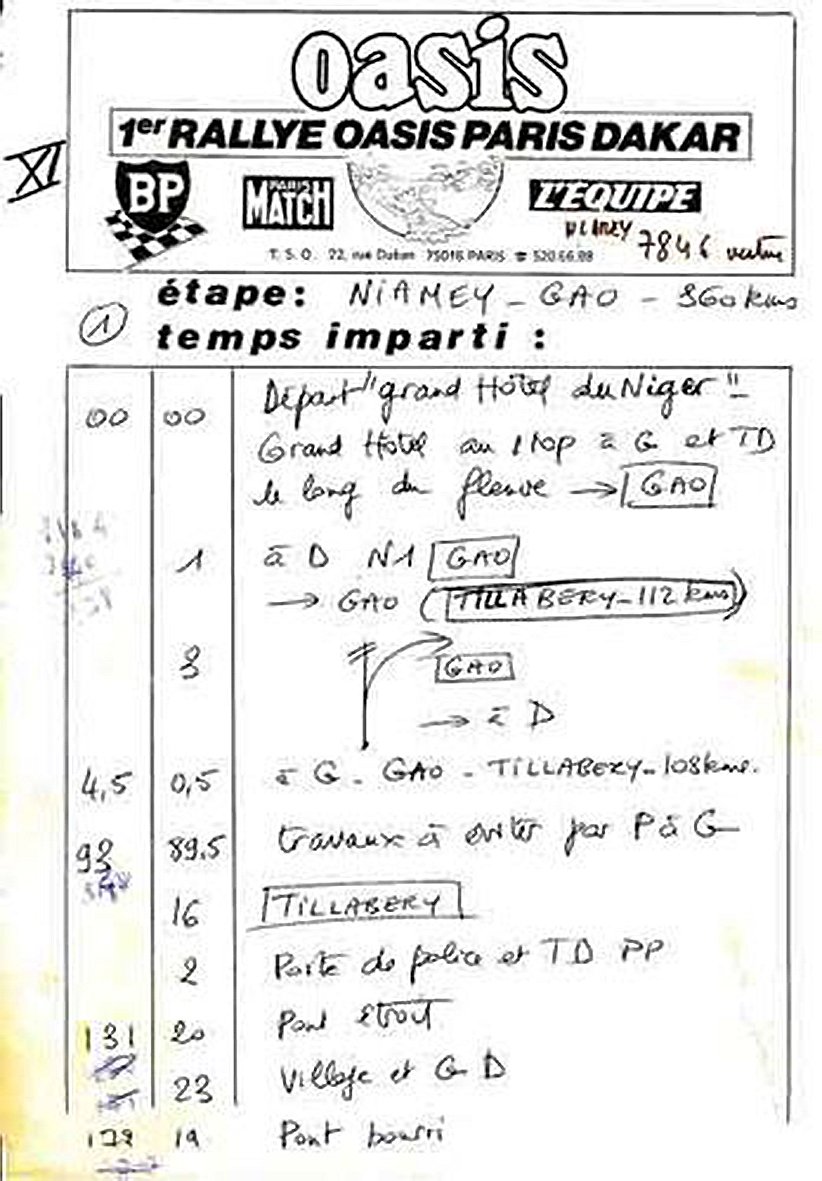 oasis
1er RALLYE OASIS PARIS DAKAR
XI
BP
PARIS MATCH
L'EQUIPE
7846
T. S. O. 22, rue Duban 75016 PARIS ☎ 520.66.88
étape: NIAMEY - GAO - 360 kms
1 temps imparti :
00 00 Départ "grand Hôtel du Niger"
Grand Hotel au stop à G et TD
le long du fleuve → GAO
1 à D N1 GAO
→ GAO (TILLABERY - 112 kms)
3 GAO
→ à D
4,5 0,5 à G - GAO - TILLABERY - 108 kms.
93 89,5 travaux à éviter par P à G
16 TILLABERY
2 Poste de police et TD PP
131 20 Pont étroit
23 Village et G D
19 Pont